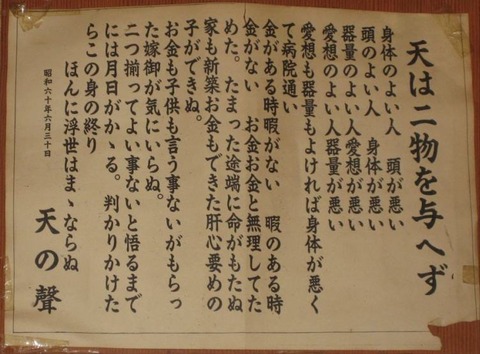 天は二物を与へず
身体のよい人　頭が悪い
頭のよい人　身体が悪い
器量のよい人愛想が悪い
愛想のよい人器量が悪い
愛想も器量もよければ身体が悪く
て病院通い
金がある時暇がない　暇のある時
金がない　お金お金と無理してた
めた。たまった途端に命がもたぬ
家も新築お金もできた肝心要めの
子ができぬ。
お金も子供も言う事ないがもらっ
た嫁御が気にいらぬ。
二つ揃ってよい事ないと悟るまで
には月日がかゝる。判かりかけた
らこの身の終り
ほんに浮世はまゝならぬ
昭和六十年六月三十日
天の聲